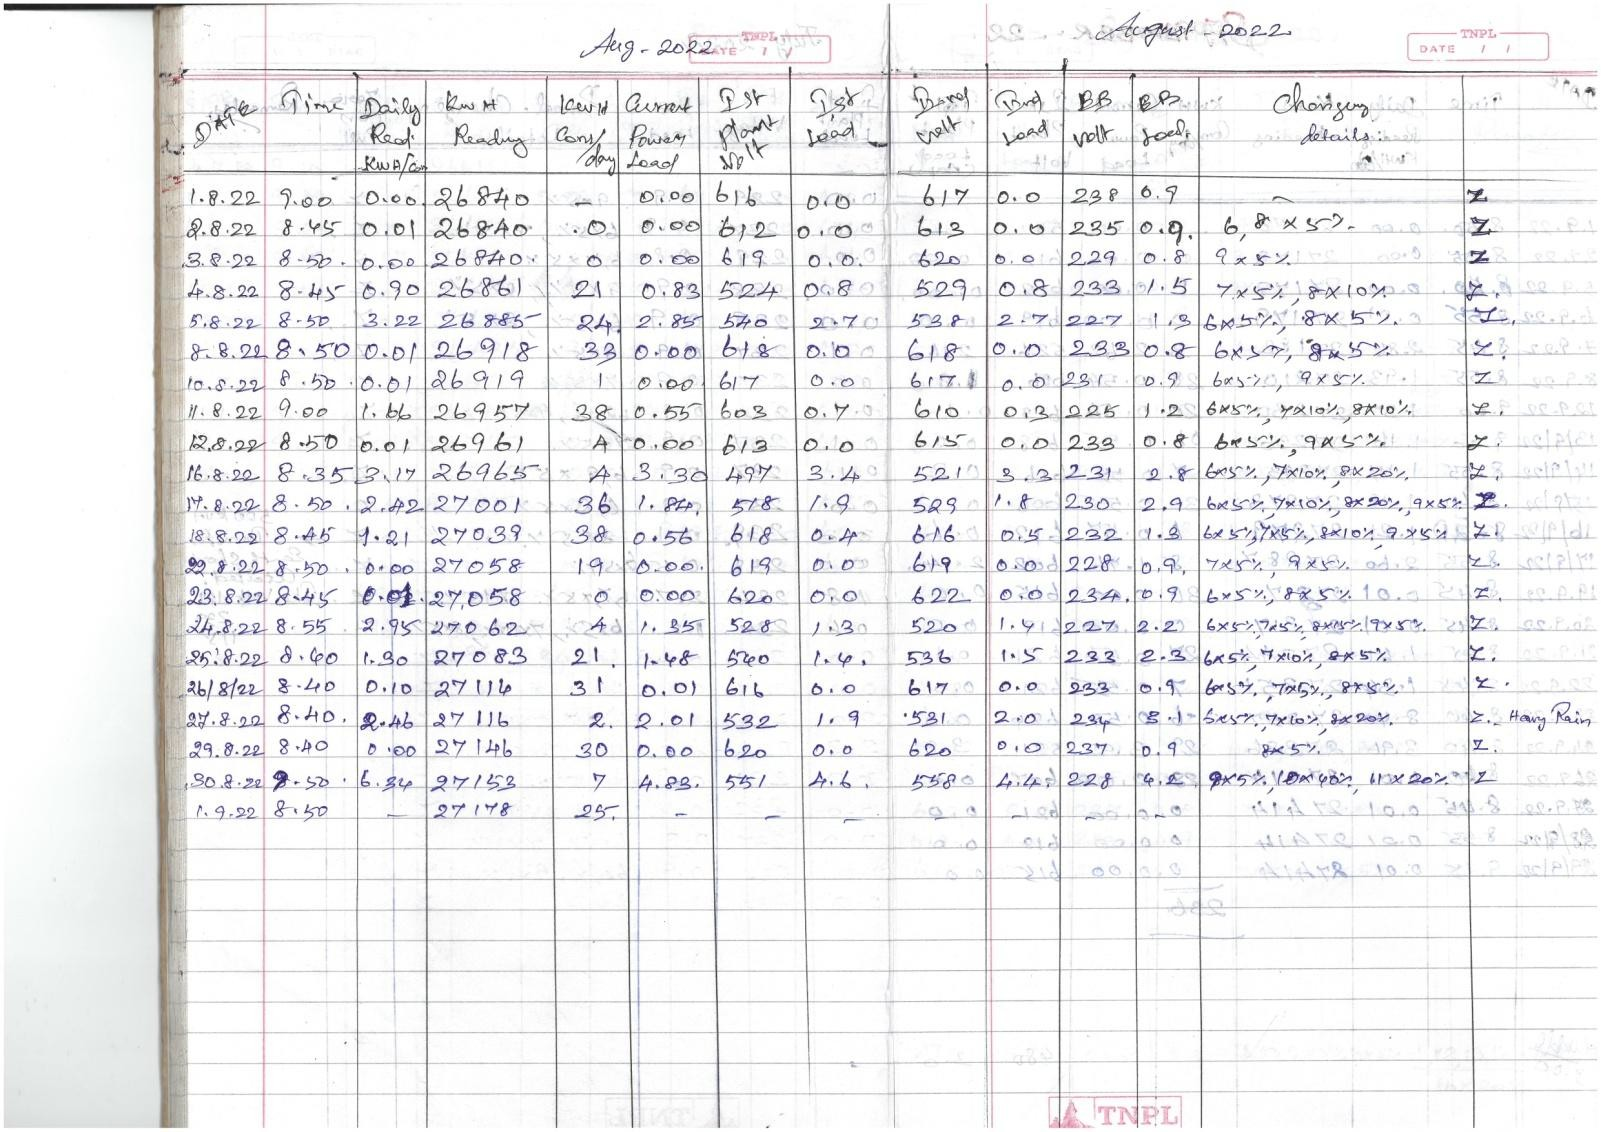 Aug - 2022 TNPL DATE / / August - 2022 TNPL DATE / /
Date Time Daily Read KWH/Con KWH Reading KWH Cons/day Current Power Load Ist Plant Volt Ist Load IInd Volt IInd Load BB Volt BB Load Charging details:
1.8.22 9.00 0.00 26840 - 0.00 616 0.0 617 0.0 238 0.9 - Z
2.8.22 8.45 0.01 26840 0 0.00 612 0.0 613 0.0 235 0.9 6,8 x 5% Z
3.8.22 8.50 0.00 26840 0 0.00 619 0.0 620 0.0 229 0.8 9x5% Z
4.8.22 8.45 0.90 26861 21 0.83 524 0.8 529 0.8 233 1.5 7x5%, 8x10% Z
5.8.22 8.50 3.22 26885 24 2.85 540 2.7 538 2.7 227 1.3 6x5%, 8x5% Z
8.8.22 8.50 0.01 26918 33 0.00 618 0.0 618 0.0 233 0.8 6x5%, 8x5% Z
10.8.22 8.50 0.01 26919 1 0.00 617 0.0 617 0.0 231 0.9 6x5%, 9x5% Z
11.8.22 9.00 1.66 26957 38 0.55 603 0.7 610 0.3 225 1.2 6x5%, 7x10%, 8x10% Z
12.8.22 8.50 0.01 26961 4 0.00 613 0.0 615 0.0 233 0.8 6x5%, 9x5% Z
16.8.22 8.35 3.17 26965 4 3.30 497 3.4 521 3.3 231 2.8 6x5%, 7x10%, 8x20% Z
17.8.22 8.50 2.42 27001 36 1.84 518 1.9 529 1.8 230 2.9 6x5%, 7x10%, 8x20%, 9x5% Z
18.8.22 8.45 1.21 27039 38 0.56 618 0.4 616 0.5 232 1.3 6x5%, 7x5%, 8x10%, 9x5% Z
22.8.22 8.50 0.00 27058 19 0.00 619 0.0 619 0.0 228 0.9 7x5%, 9x5% Z
23.8.22 8.45 0.01 27058 0 0.00 620 0.0 622 0.0 234 0.9 6x5%, 8x5% Z
24.8.22 8.55 2.95 27062 4 1.35 528 1.3 520 1.4 227 2.2 6x5%, 7x5%, 8x15%, 9x5% Z
25.8.22 8.40 1.30 27083 21 1.48 540 1.4 536 1.5 233 2.3 6x5%, 7x10%, 8x5% Z
26/8/22 8.40 0.10 27114 31 0.01 616 0.0 617 0.0 233 0.9 6x5%, 7x5%, 8x5% Z
27.8.22 8.40 2.46 27116 2 2.01 532 1.9 531 2.0 234 3.1 6x5%, 7x10%, 8x20% Z - Heavy Rain
29.8.22 8.40 0.00 27146 30 0.00 620 0.0 620 0.0 237 0.9 8x5% Z
30.8.22 9.50 6.34 27153 7 4.83 551 4.6 558 4.4 228 4.2 9x5%, 10x40%, 11x20% Z
1.9.22 8.50 - 27178 25 - - - - - - -
TNPL